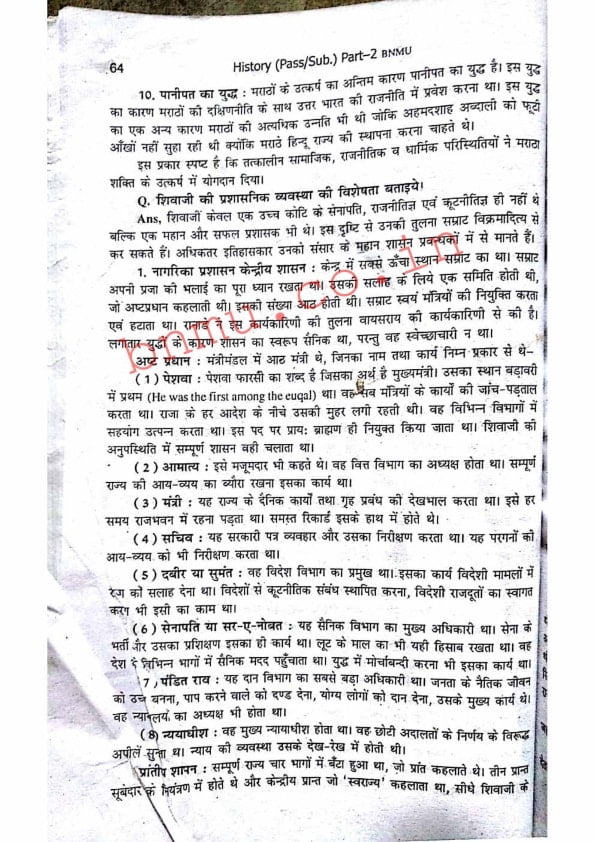 64
History (Pass/Sub.) Part–2 BNMU
10. पानीपत का युद्ध : मराठों के उत्कर्ष का अन्तिम कारण पानीपत का युद्ध है। इस युद्ध
का कारण मराठों की दक्षिणनीति के साथ उत्तर भारत की राजनीति में प्रवेश करना था। इस युद्ध
का एक अन्य कारण मराठों की अत्यधिक उन्नति भी थी जोकि अहमदशाह अब्दाली को फूटी
आँखों नहीं सुहा रही थी क्योंकि मराठे हिन्दू राज्य की स्थापना करना चाहते थे।
इस प्रकार स्पष्ट है कि तत्कालीन सामाजिक, राजनीतिक व धार्मिक परिस्थितियों ने मराठा
शक्ति के उत्कर्ष में योगदान दिया।
Q. शिवाजी की प्रशासनिक व्यवस्था की विशेषता बताइये।
Ans, शिवाजी केवल एक उच्च कोटि के सेनापति, राजनीतिज्ञ एवं कूटनीतिज्ञ ही नहीं थे
बल्कि एक महान और सफल प्रशासक भी थे। इस दृष्टि से उनकी तुलना सम्राट विक्रमादित्य से
कर सकते हैं। अधिकतर इतिहासकार उनको संसार के महान शासन प्रबन्धकों में से मानते हैं।
1. नागरिका प्रशासन केन्द्रीय शासन : केन्द्र में सबसे ऊँचा स्थान सम्राट का था। सम्राट
अपनी प्रजा की भलाई का पूरा ध्यान रखता था। उसकी सलाह के लिये एक समिति होती थी,
जो अष्टप्रधान कहलाती थी। इसकी संख्या आठ होती थी। सम्राट स्वयं मंत्रियों की नियुक्ति करता
एवं हटाता था। रानाडे ने इस कार्यकारिणी की तुलना वायसराय की कार्यकारिणी से की है।
लगातार युद्धों के कारण शासन का स्वरूप सैनिक था, परन्तु वह स्वेच्छाचारी न था।
अष्ट प्रधान : मंत्रीमंडल में आठ मंत्री थे, जिनका नाम तथा कार्य निम्न प्रकार से थे–
(1) पेशवा : पेशवा फारसी का शब्द है जिसका अर्थ है मुख्यमंत्री। उसका स्थान बड़ावरी
में प्रथम (He was the first among the euqal) था। वह सब मंत्रियों के कार्यों की जांच-पड़ताल
करता था। राजा के हर आदेश के नीचे उसकी मुहर लगी रहती थी। वह विभिन्न विभागों में
सहयोग उत्पन्न करता था। इस पद पर प्राय: ब्राह्मण ही नियुक्त किया जाता था। शिवाजी की
अनुपस्थिति में सम्पूर्ण शासन वही चलाता था।
(2) आमात्य : इसे मजूमदार भी कहते थे। वह वित्त विभाग का अध्यक्ष होता था। सम्पूर्ण
राज्य की आय-व्यय का ब्यौरा रखना इसका कार्य था।
(3) मंत्री : यह राज्य के दैनिक कार्यों तथा गृह प्रबंध की देखभाल करता था। इसे हर
समय राजभवन में रहना पड़ता था। समस्त रिकार्ड इसके हाथ में होते थे।
(4) सचिव : यह सरकारी पत्र व्यवहार और उसका निरीक्षण करता था। यह परगनों की
आय-व्यय को भी निरीक्षण करता था।
(5) दबीर या सुमंत : वह विदेश विभाग का प्रमुख था। इसका कार्य विदेशी मामलों में
को सलाह देना था। विदेशों से कूटनीतिक संबंध स्थापित करना, विदेशी राजदूतों का स्वागत
करना भी इसी का काम था।
(6) सेनापति या सर-ए-नोबत : यह सैनिक विभाग का मुख्य अधिकारी था। सेना के
भर्ती और उसका प्रशिक्षण इसका ही कार्य था। लूट के माल का भी यही हिसाब रखता था। वह
देश के विभिन्न भागों में सैनिक मदद पहुँचाता था। युद्ध में मोर्चाबन्दी करना भी इसका कार्य था।
7, पंडित राव : यह दान विभाग का सबसे बड़ा अधिकारी था। जनता के नैतिक जीवन
को उच्च बनना, पाप करने वाले को दण्ड देना, योग्य लोगों को दान देना, उसके मुख्य कार्य थे।
वह न्यायालय का अध्यक्ष भी होता था।
(8) न्यायाधीश : वह मुख्य न्यायाधीश होता था। वह छोटी अदालतों के निर्णय के विरूद्ध
अपीलें सुनता था। न्याय की व्यवस्था उसके देख-रेख में होती थी।
प्रांतीय शापन : सम्पूर्ण राज्य चार भागों में बँटा हुआ था, जो प्रांत कहलाते थे। तीन प्रान्त
सूबेदार के नियंत्रण में होते थे और केन्द्रीय प्रान्त जो 'स्वराज्य' कहलाता था, सीधे शिवाजी के
bnmu.co.in